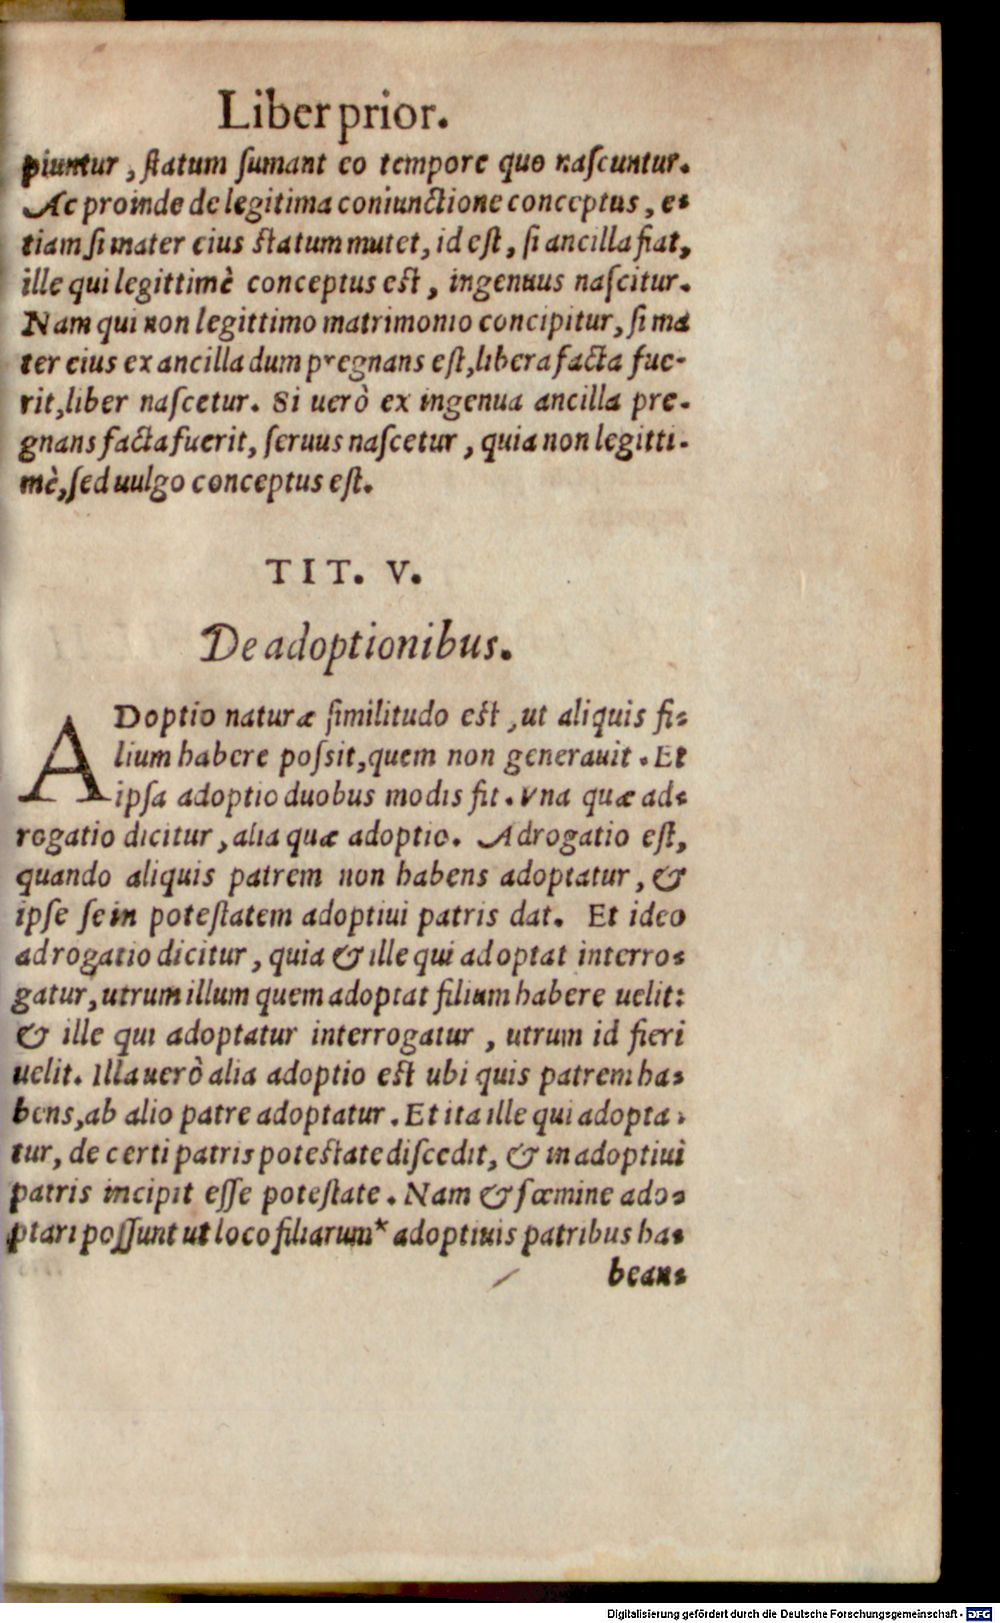 Liber prior.
piuntur, statum sumant eo tempore quo nascuntur.
Ac proinde de legitima coniunctione conceptus, e-
tiam si mater eius statum mutet, id est, si ancilla fiat,
ille qui legittimè conceptus est, ingenuus nascitur.
Nam qui non legittimo matrimonio concipitur, si ma
ter eius ex ancilla dum pregnans est, libera facta fue-
rit, liber nascetur. Si uerò ex ingenua ancilla pre-
gnans facta fuerit, seruus nascetur, quia non legitti-
mè, sed uulgo conceptus est.
TIT. V.
De adoptionibus.
ADoptio naturæ similitudo est, ut aliquis fi-
lium habere possit, quem non generauit. Et
ipsa adoptio duobus modis fit. Vna quæ ad-
rogatio dicitur, alia quæ adoptio. Adrogatio est,
quando aliquis patrem non habens adoptatur, &
ipse se in potestatem adoptiui patris dat. Et ideo
adrogatio dicitur, quia & ille qui adoptat interro-
gatur, utrum illum quem adoptat filium habere uelit:
& ille qui adoptatur interrogatur, utrum id fieri
uelit. Illa uerò alia adoptio est ubi quis patrem ha-
bens, ab alio patre adoptatur. Et ita ille qui adopta-
tur, de certi patris potestate discedit, & in adoptiui
patris incipit esse potestate. Nam & fœmine ado-
ptari possunt ut loco filiarum* adoptiuis patribus ha-
bean-
Digitalisierung gefördert durch die Deutsche Forschungsgemeinschaft - DFG